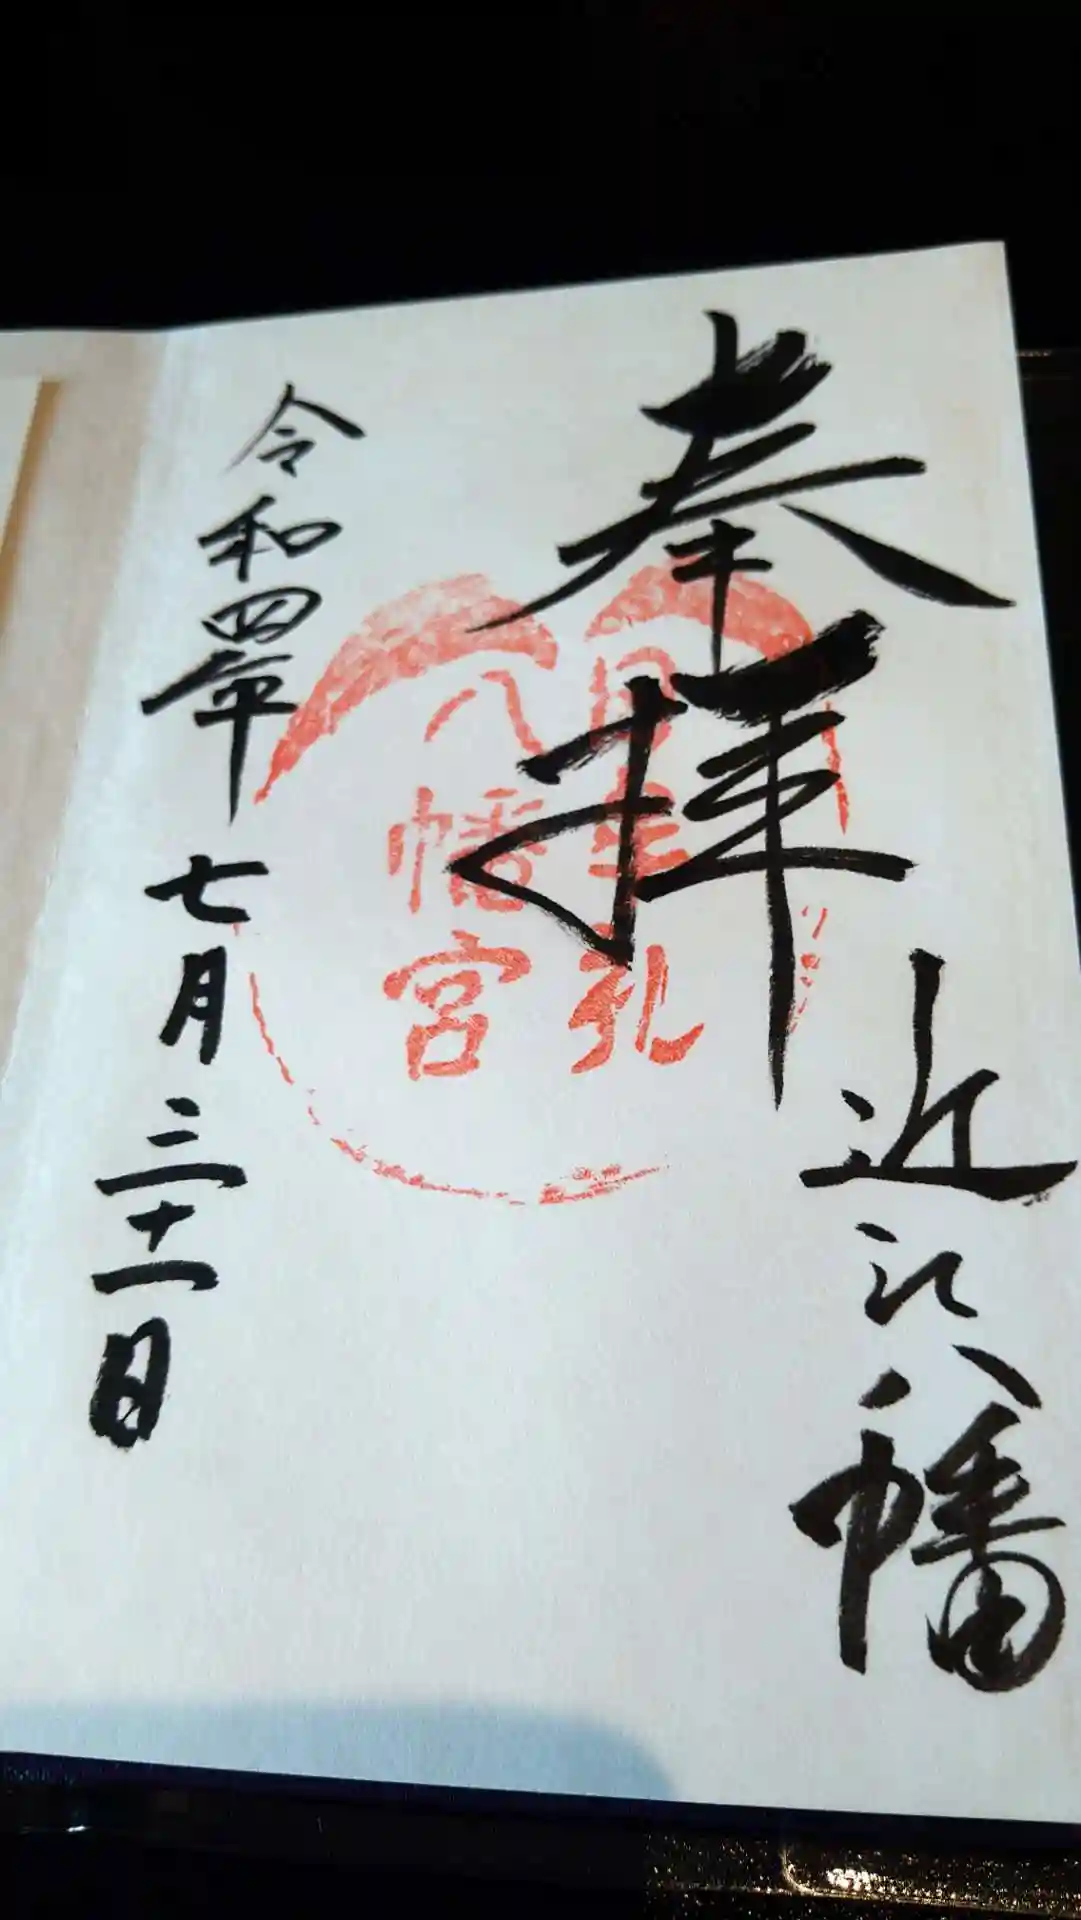 奉拝
近江八幡
日牟礼
八幡宮
令和四年七月三十一日